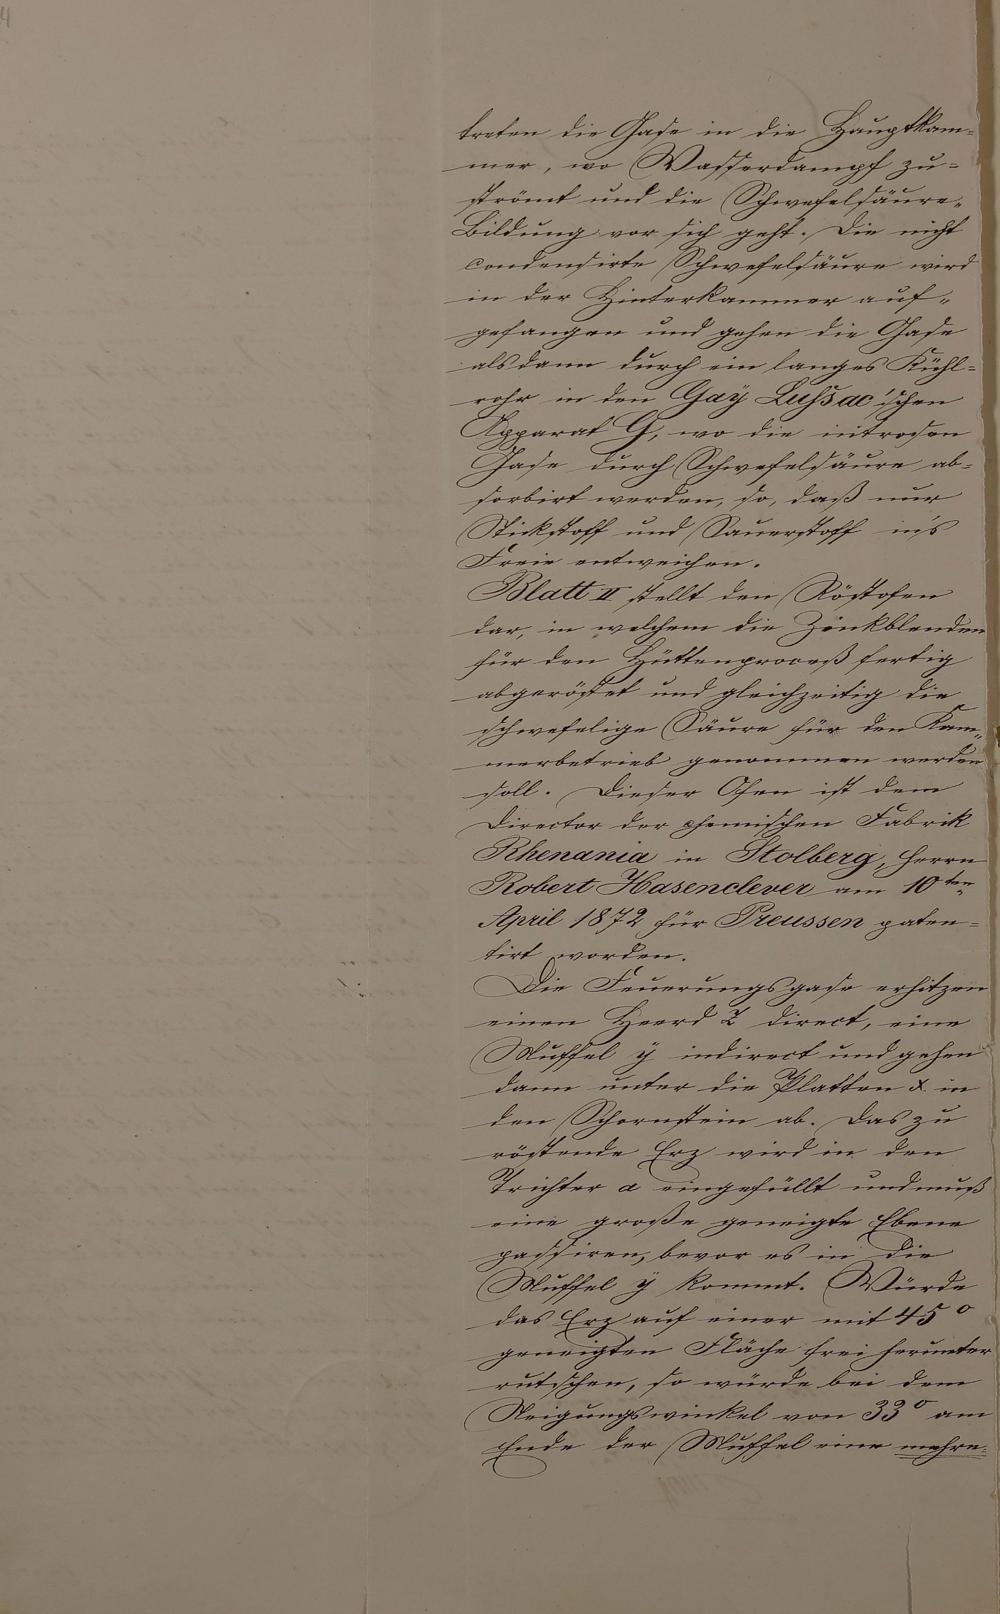 treten die Gase in die Hauptkam-
mer, wo Wasserdampf zu-
strömt und die Schwefelsäure-
Bildung vor sich geht. Die nicht
condensirte Schwefelsäure wird
in der Hinterkammer auf-
gefangen und gehen die Gase
alsdann durch ein langes Kühl-
rohr in den Gaÿ Lussac'schen
Apparat G, wo die introsen
Gase durch Schwefelsäure ab-
sorbirt werden, so, daß nur
Stickstoff und Sauerstoff in's
Freie entweichen.
Blatt II stellt den Röstofen
dar, in welchem die Zinkblenden
für den Hüttenproceß fertig
abgeröstet und gleichzeitig die
schwefelige Säure für den Kam-
merbetrieb genommen werden
soll. Dieser Ofen ist dem
Director der chemischen Fabrik
Rhenania in Stolberg, Herrn
Robert Hasenclever am 10ten
April 1872 für Preussen paten-
tirt worden.
Die Feuerungsgase erhitzen
einen Heerd Z direct, eine
Muffel ÿ indirect und gehen
dann unter die Platten x in
den Schornstein ab. Das zu
röstende Erz wird in den
Trichter a eingefüllt und muß
eine große geneigte Ebene
passiren, bevor es in die
Muffel ÿ kommt. Würde
das Erz auf einer mit 45°
geneigten Fläche frei herunter
rutschen, so würde bei dem
Neigungswinkel von 33° am
Ende der Muffel eine mehre-